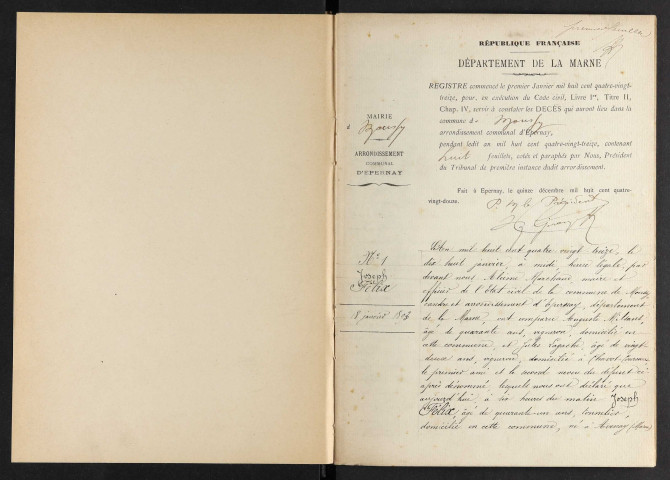 premier feuillet
RÉPUBLIQUE FRANÇAISE
DÉPARTEMENT DE LA MARNE
REGISTRE commencé le premier Janvier mil huit cent quatre-vingt-
treize, pour, en exécution du Code civil, Livre Ier, Titre II,
Chap. IV, servir à constater les DÉCÈS qui auront lieu dans la
commune de Moussy
arrondissement communal d'Épernay,
pendant ledit an mil huit cent quatre-vingt-treize, contenant
huit feuillets, cotés et paraphés par Nous, Président
du Tribunal de première instance dudit arrondissement.
Fait à Épernay, le quinze décembre mil huit cent quatre-
vingt-douze.
P. le Président
MAIRIE
d Moussy
ARRONDISSEMENT
COMMUNAL
D'ÉPERNAY
N° 1
Joseph
Félix
18 janvier 1893
L'an mil huit cent quatre vingt treize, le
dix huit janvier, à midi heure légale, par
devant nous Marchand, maire et
officier de l'État civil de la commune de Moussy
canton et arrondissement d'Épernay, département
de la Marne, ont comparu Auguste
âgé de quarante ans, vigneron, domicilié en
cette commune, et Jules Lagache, âgé de vingt-
deux ans, vigneron, domicilié à Chavot-Courcourt
le premier ami et le second neveu du défunt ci
après dénommé lesquels nous ont déclaré que
aujourd'hui, à six heures du matin Joseph
Félix, âgé de quarante-un ans, tonnelier,
domicilié en cette commune, né à Avenay (Marne)